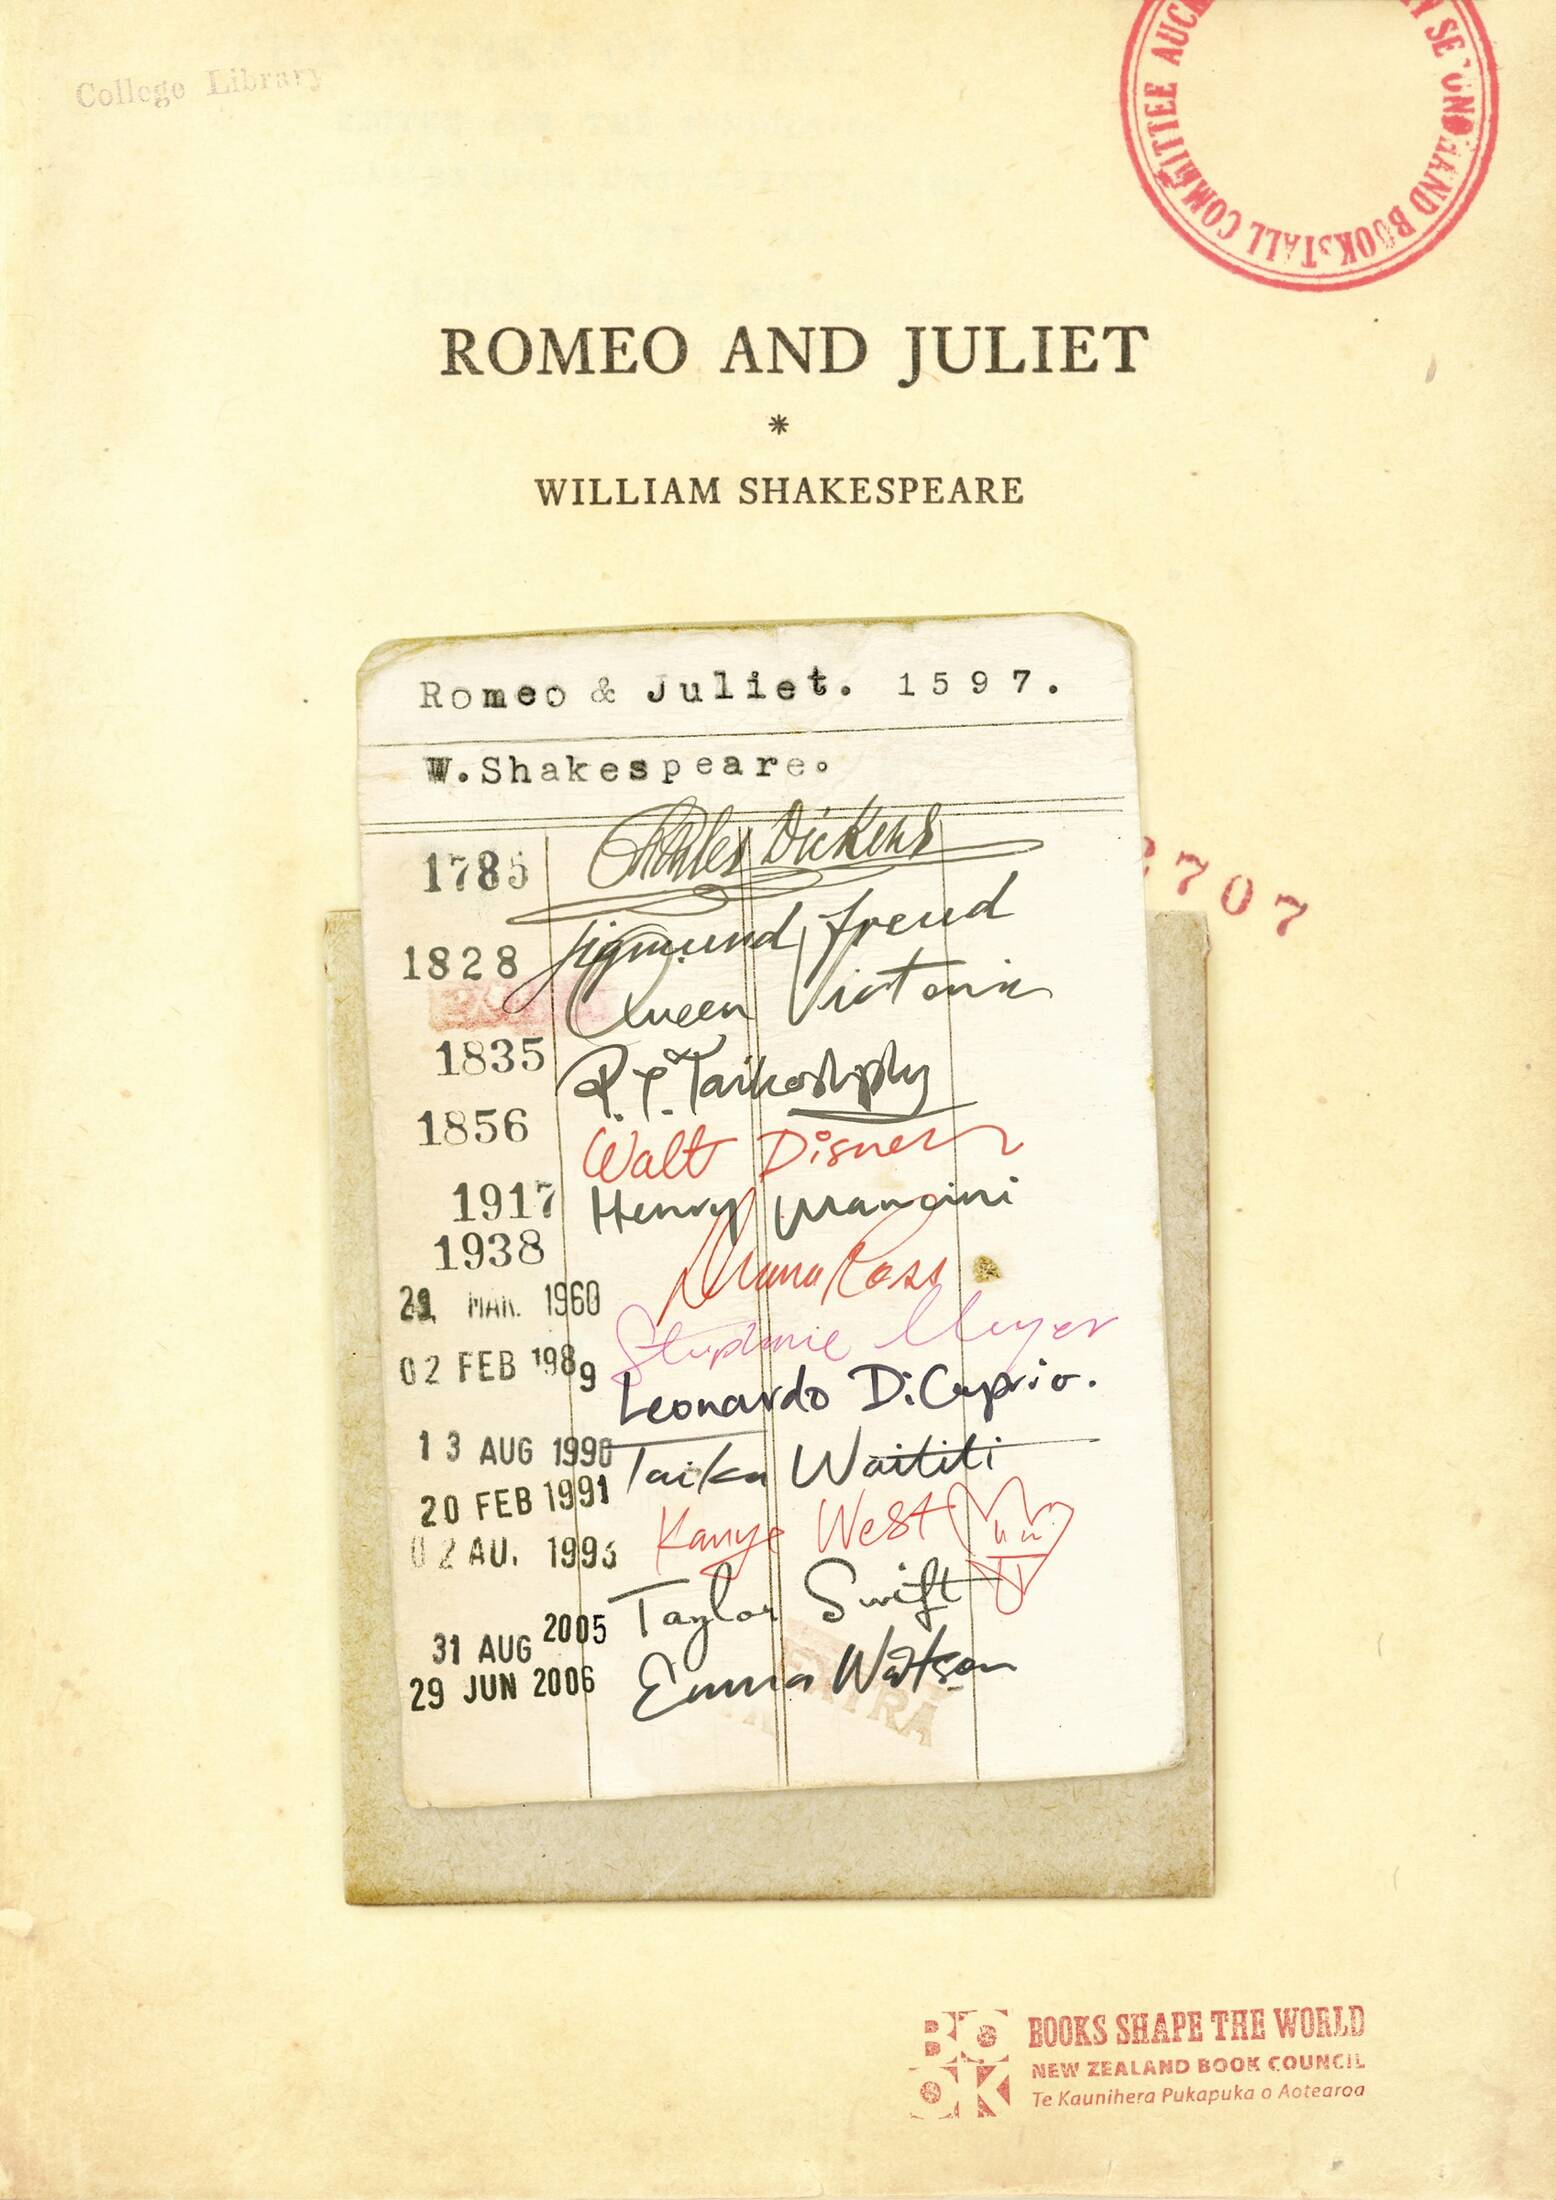 College Library
COMMITTEE AUCK
SECONDHAND BOOKSTALL
ROMEO AND JULIET
*
WILLIAM SHAKESPEARE
Romeo & Juliet. 1597.
W.Shakespeare.
1785 Charles Dickens
1828 Sigmund Freud
Queen Victoria
1835 P.T. Taikoshphy
1856 Walt Disney
1917 Henry Mancini
1938 Diana Ross
29 MAR. 1960 Stephanie Meyer
02 FEB 1989 Leonardo DiCaprio.
13 AUG 1990 Taika Waititi
20 FEB 1991 Kanye West
02 AU. 1993 Taylor Swift
31 AUG 2005 Emma Watson
29 JUN 2006
2707
BOOK
BOOKS SHAPE THE WORLD
NEW ZEALAND BOOK COUNCIL
Te Kaunihera Pukapuka o Aotearoa